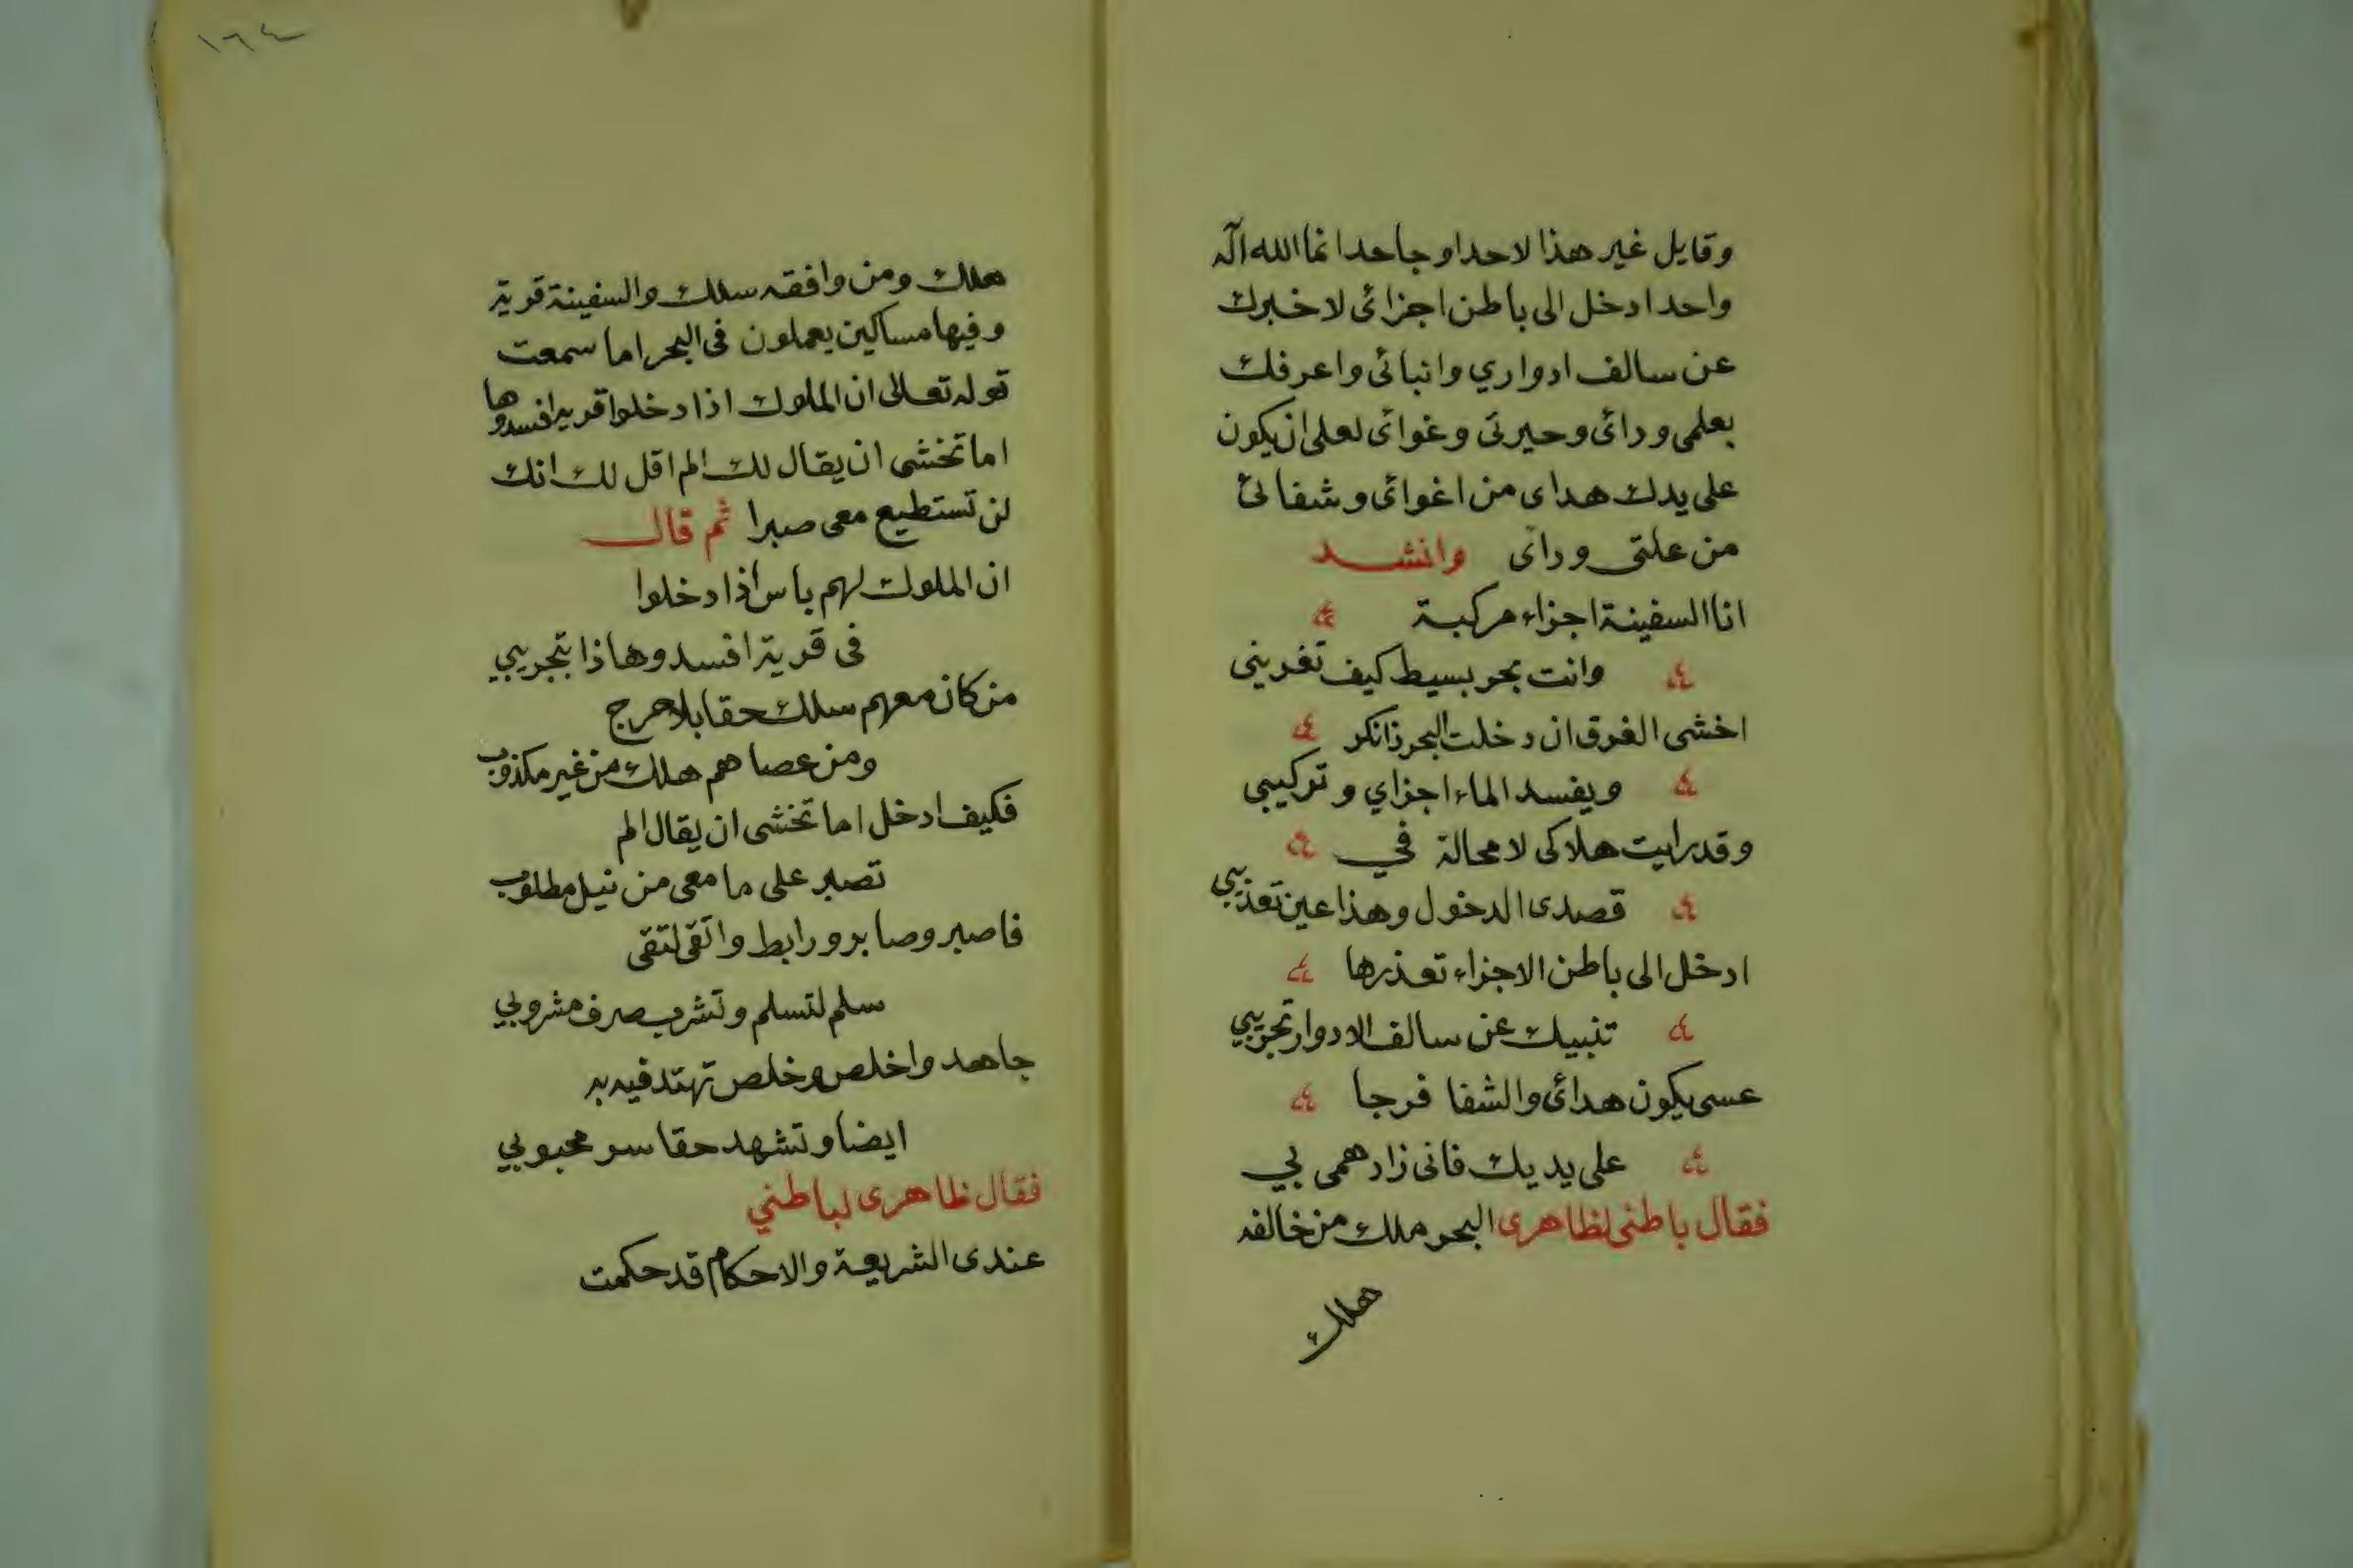 وقايل غير هذا لاحد او جاحد انما الله اله
واحد ادخل الى باطن اجزائى لاخبرك
عن سالف ادواري وانبائى واعرفك
بعلمى ودائى وحيرتى وغوائى لعلى ان يكون
على يدك هداى من اغوائى وشفائى
من علتى ودائى وانشد
انا السفينة اجزاء مركبة
وانت بحر بسيط كيف تغرينى
اخشى الغرق ان دخلت البحر
ويفسد الماء اجزاي وتركيبي
وقد رايت هلاكى لا محالة في
قصدى الدخول وهذا عين تعذيبي
ادخل الى باطن الاجزاء تعذرها
تنبيك عن سالف الادوار تجريبي
عسى يكون هدائى والشفا فرجا
على يديك فانى زاد همى بي
فقال باطنى لظاهرى البحر ملك من خالفه
هلك
١٦٤
هلك ومن وافقه سلك والسفينة قرية
وفيها مساكين يعملون فى البحر اما سمعت
قوله تعالى ان الملوك اذا دخلوا قرية افسدوها
اما تخشى ان يقال لك الم اقل لك انك
لن تستطيع معى صبرا ثم قال
ان الملوك لهم باس اذا دخلوا
فى قرية افسدوها ذا بتجريبي
من كان معهم سلك حقا بلا حرج
ومن عصاهم هلك من غير مكذوب
فكيف ادخل اما تخشى ان يقال الم
تصبر على ما معى من نيل مطلوب
فاصبر وصابر ورابط واتقى لتقى
سلم لتسلم وتشرب صرف مشروبي
جاهد واخلص وخلص تهتد فيه به
ايضا وتشهد حقا سر محبوبي
فقال ظاهرى لباطني
عندى الشريعة والاحكام قد حكمت